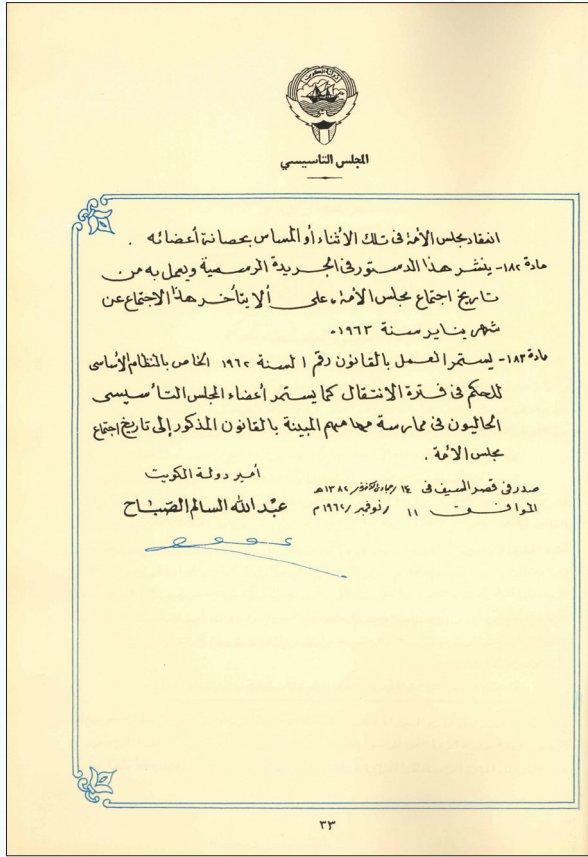 دولة الكويت
المجلس التأسيسي
انعقاد مجلس الأمة في تلك الأثناء أو المساس بحصانة أعضائه .
مادة ١٨٢- ينشر هذا الدستور في الجريدة الرسمية ويعمل به من
تاريخ اجتماع مجلس الأمة، على ألا يتأخر هذا الاجتماع عن
شهر يناير سنة ١٩٦٣.
مادة ١٨٣- يستمر العمل بالقانون رقم ١ لسنة ١٩٦٢ الخاص بالنظام الأساسي
للحكم في فترة الانتقال كما يستمر أعضاء المجلس التأسيسي
الحاليون في ممارسة مهامهم المبينة بالقانون المذكور إلى تاريخ اجتماع
مجلس الأمة .
أمير دولة الكويت
عبد الله السالم الصباح
صدر في قصر السيف في ١٤ /جمادى الآخر/ ١٣٨٢ هـ
الموافق ١١ /نوفمبر/ ١٩٦٢ م
٣٣